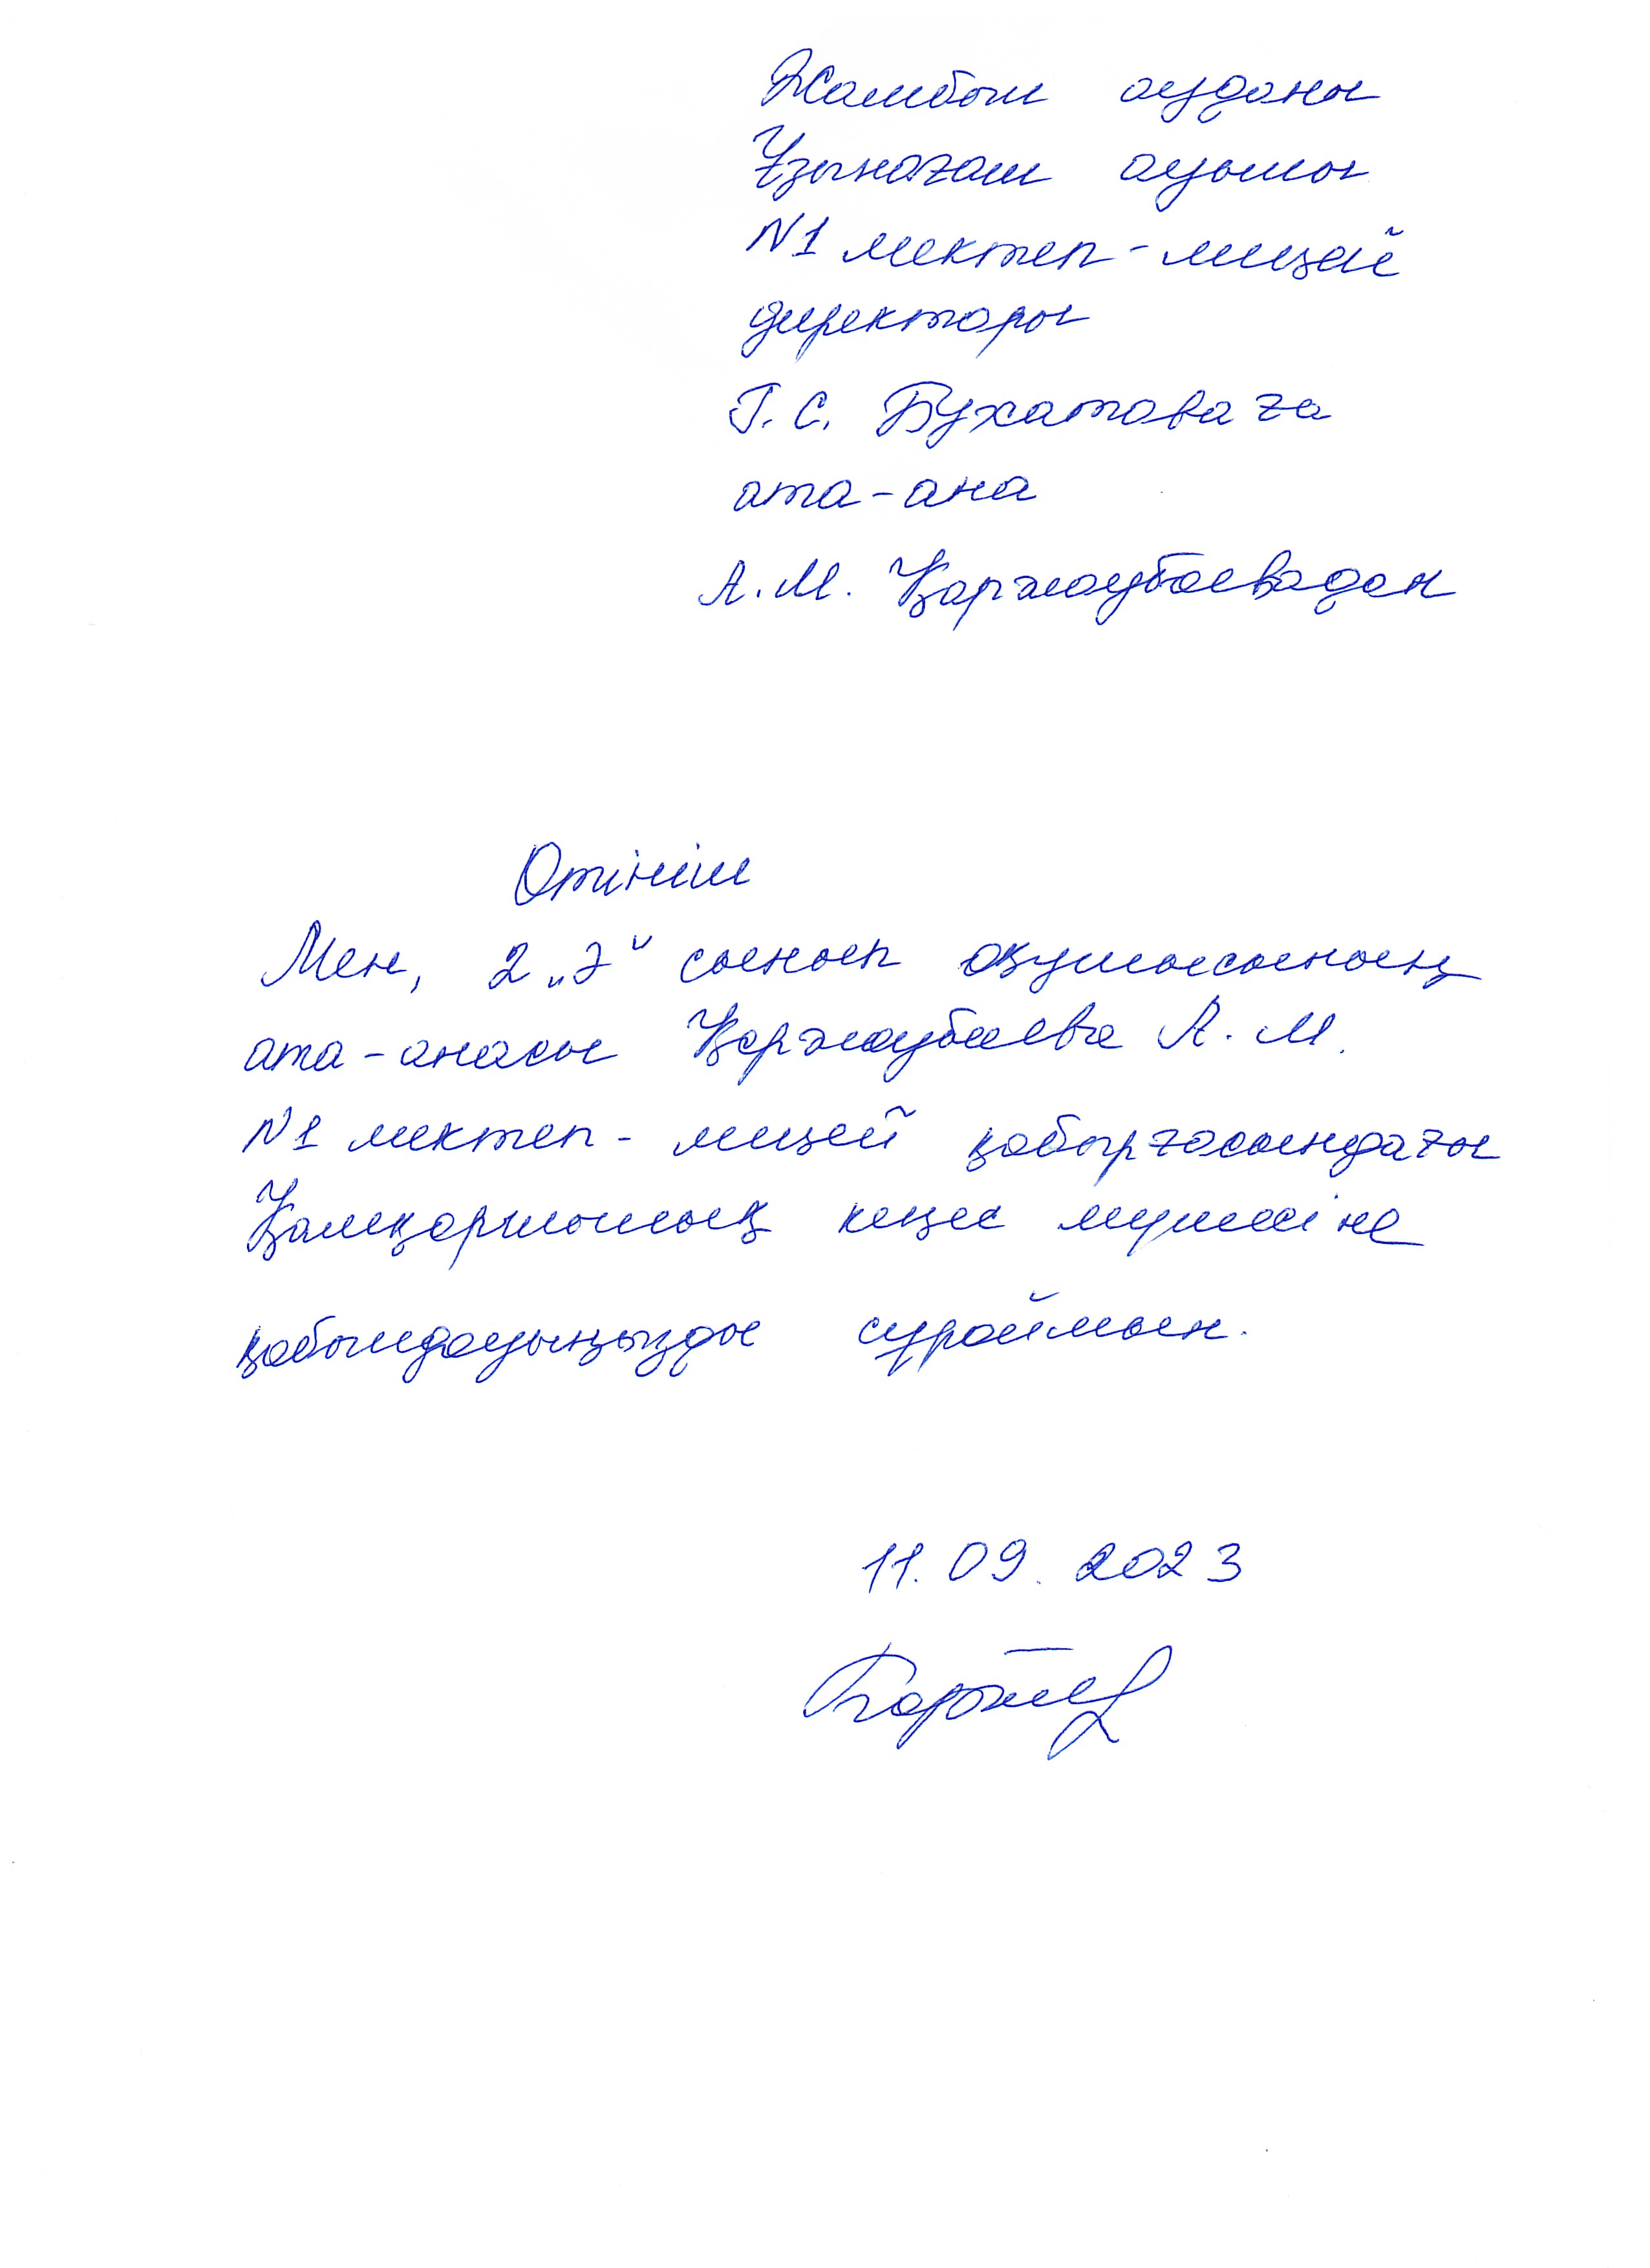 Жамбыл ауданы
Ұзынағаш ауылы
N1 мектеп-лицей
директоры
Г.С. Бухатоваға
ата-ана
А.М. Қаржаубаевадан
Өтініш
Мен, 2 „Ә" сынып оқушысының
ата-анасы Қаржаубаева А.М.
N1 мектеп-лицей қабырғасындағы
Қамқоршылық кеңес мүшесіне
қабылдауыңызды сұраймын.
11.09.2023